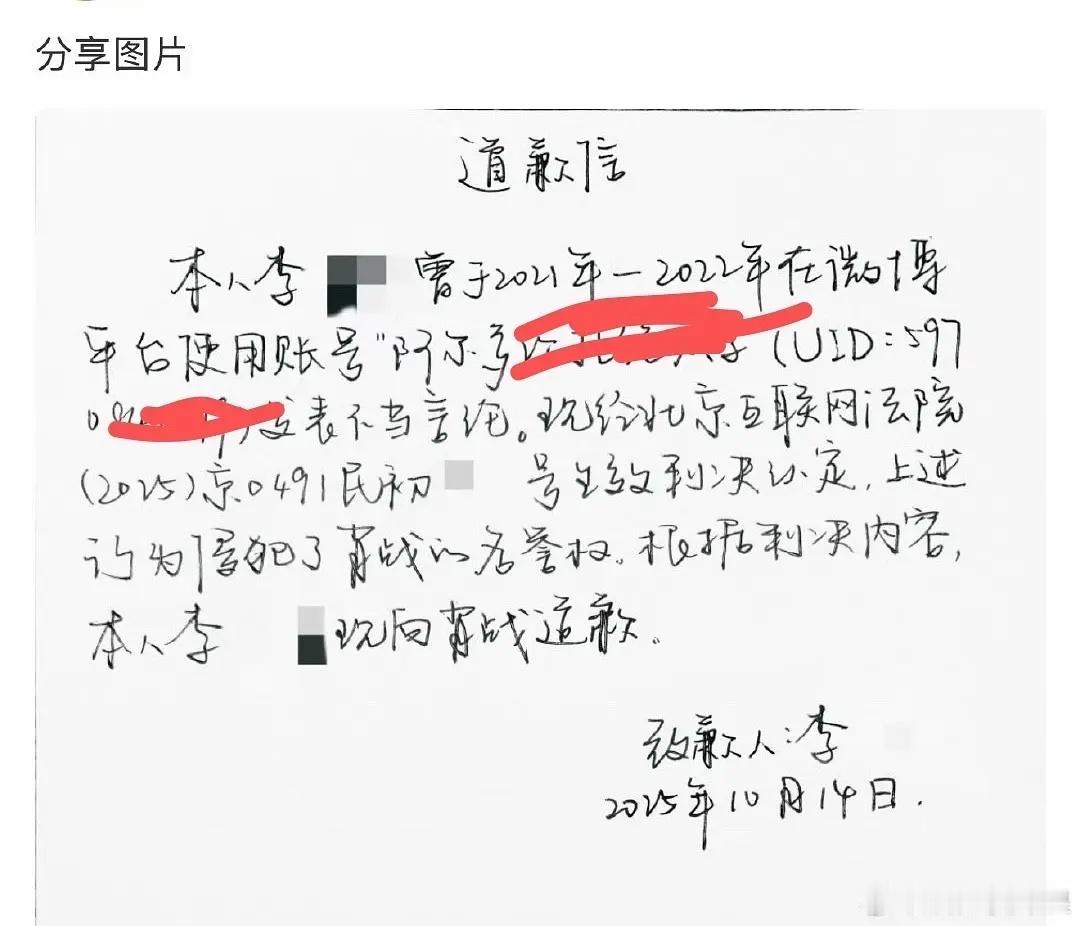 分享图片
道歉信
本人李 曾于2021年-2022年在微博
平台使用账号"阿尔多 (UID:597
0 发表不当言论。现经北京互联网法院
(2025)京0491民初 号生效判决认定,上述
行为侵犯了肖战的名誉权。根据判决内容,
本人李 现向肖战道歉。
致歉人:李
2025年10月14日.